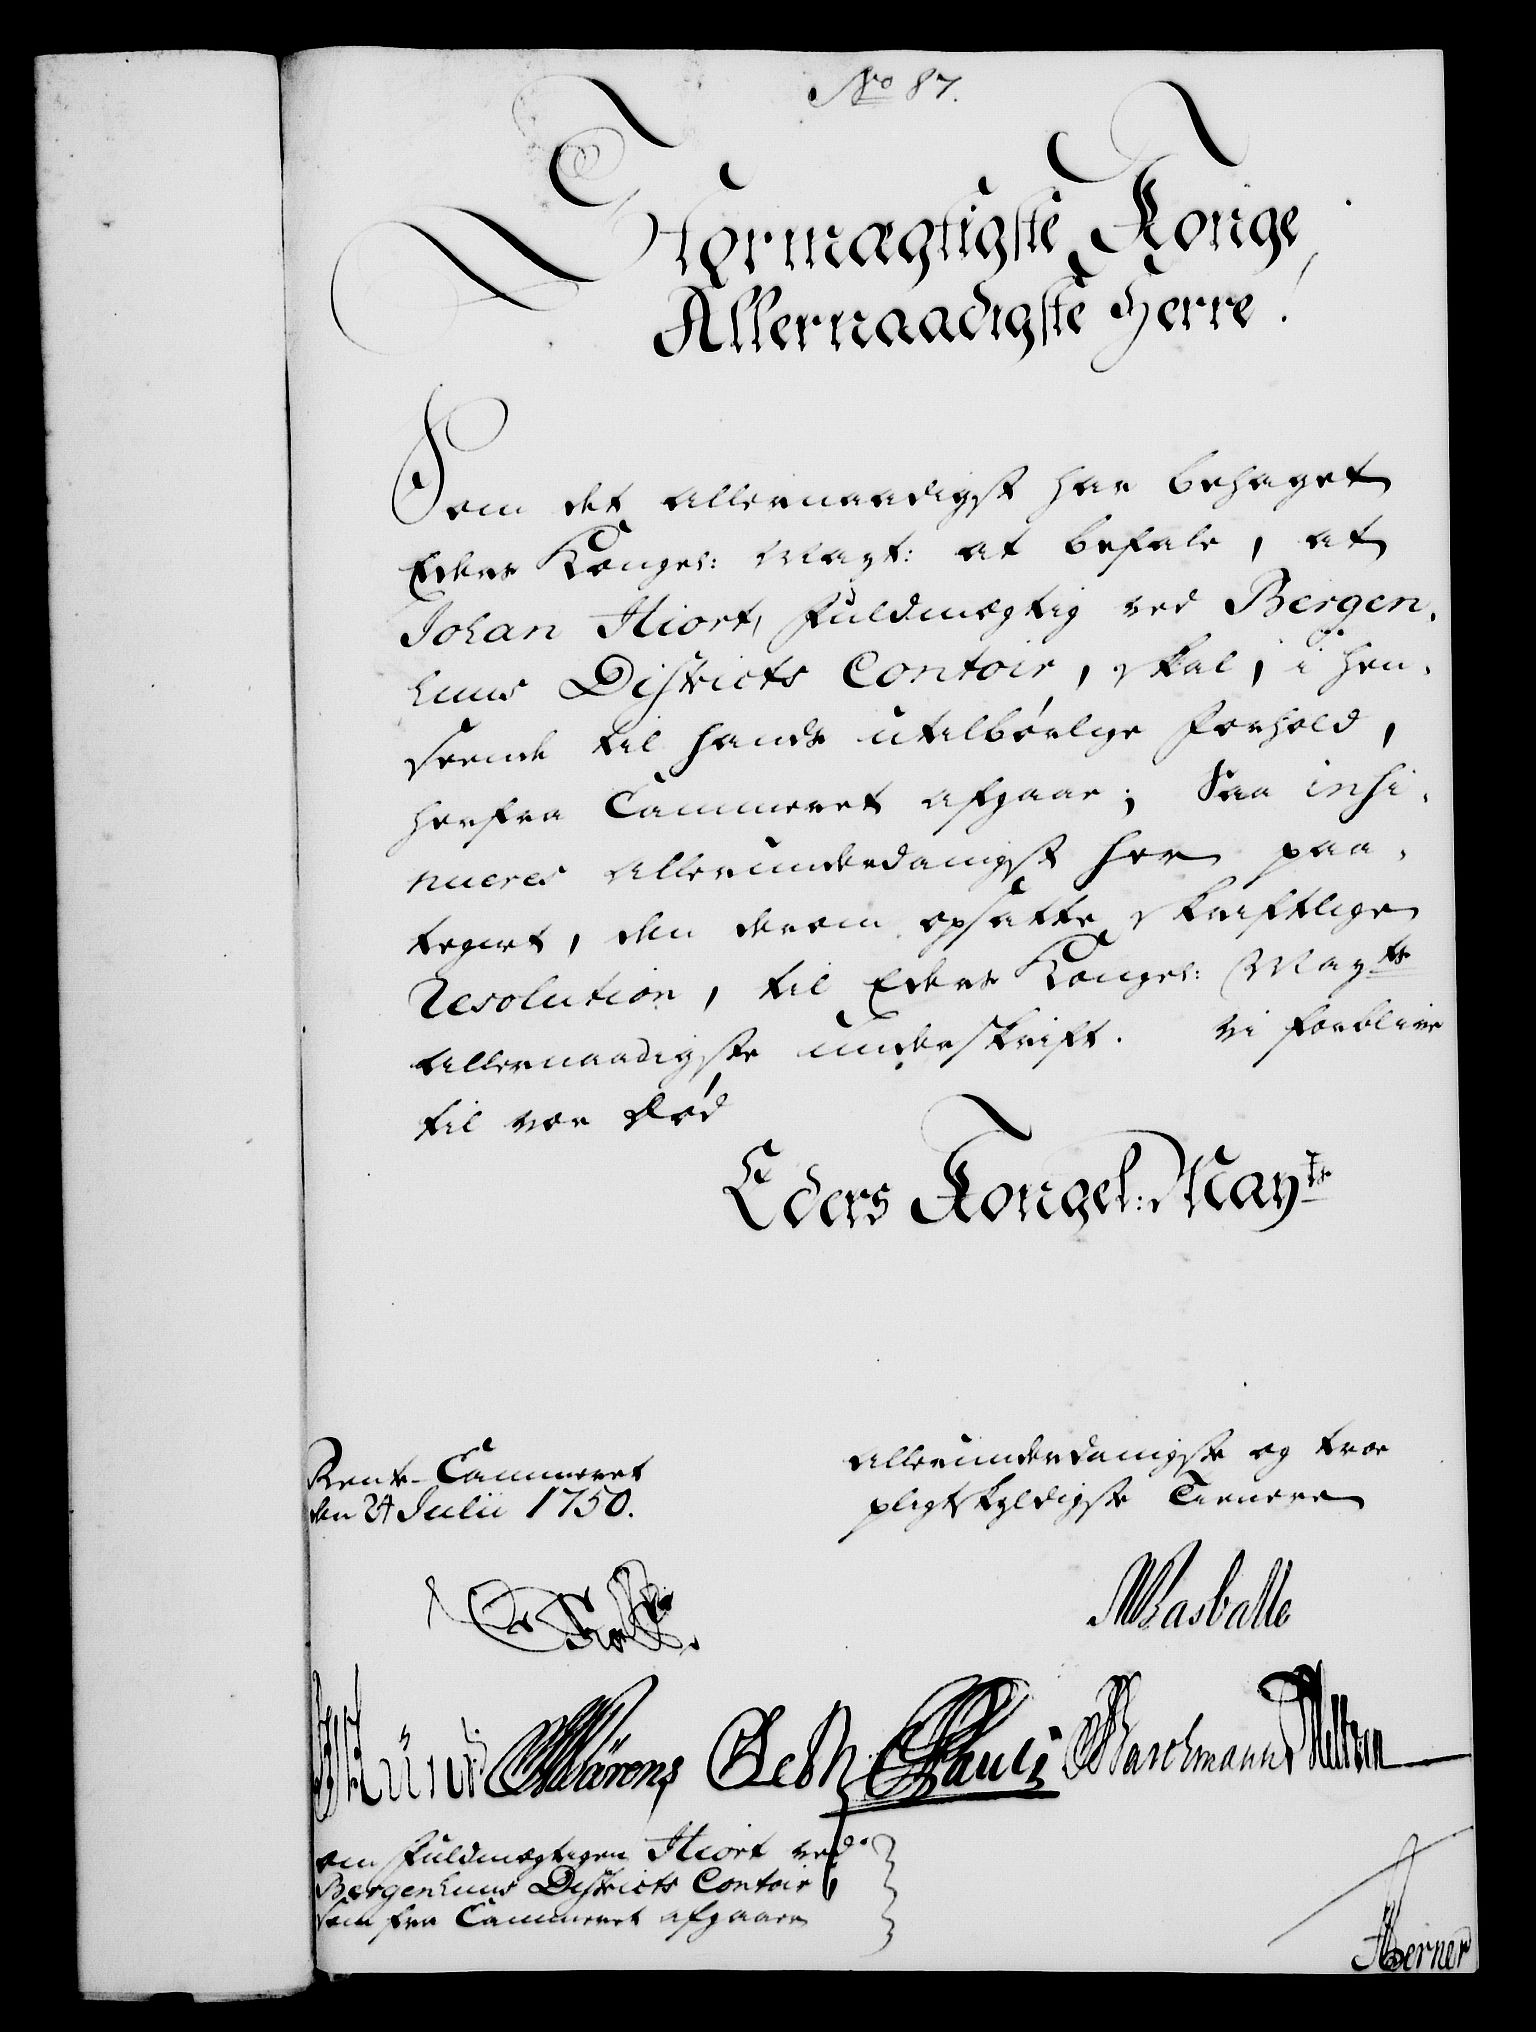 No 87.
Stormægtigste Konge,
Allernaadigste Herre!
Som det allernaadigst har behaget
Eders Kongel: Mayt: at befale, at
Johan Hiort, fuldmægtig ved Bergen-
huus Districts Contoir, skal, i hen-
seende til hands utilbørlige Forhold,
herfra Cammeret afgaae; Saa insi-
nueres allerunderdanigst her paa-
tegnet, den derom opsatte skriftlige
Resolution, til Eders Kongel: Mayts
allernaadigste underskrift. Vi forblive
til vor Død
Eders Kongel: Mayts
Rente-Cammeret
den 24 Julii 1750.
allerunderdanigste og troe
pligtskyldigste Tienere
Wasballe
Wärens Pauli Barchmann
om Fuldmægtigen Hiort ved
Bergenhuus Districts Contoir
som fra Cammeret afgaaer